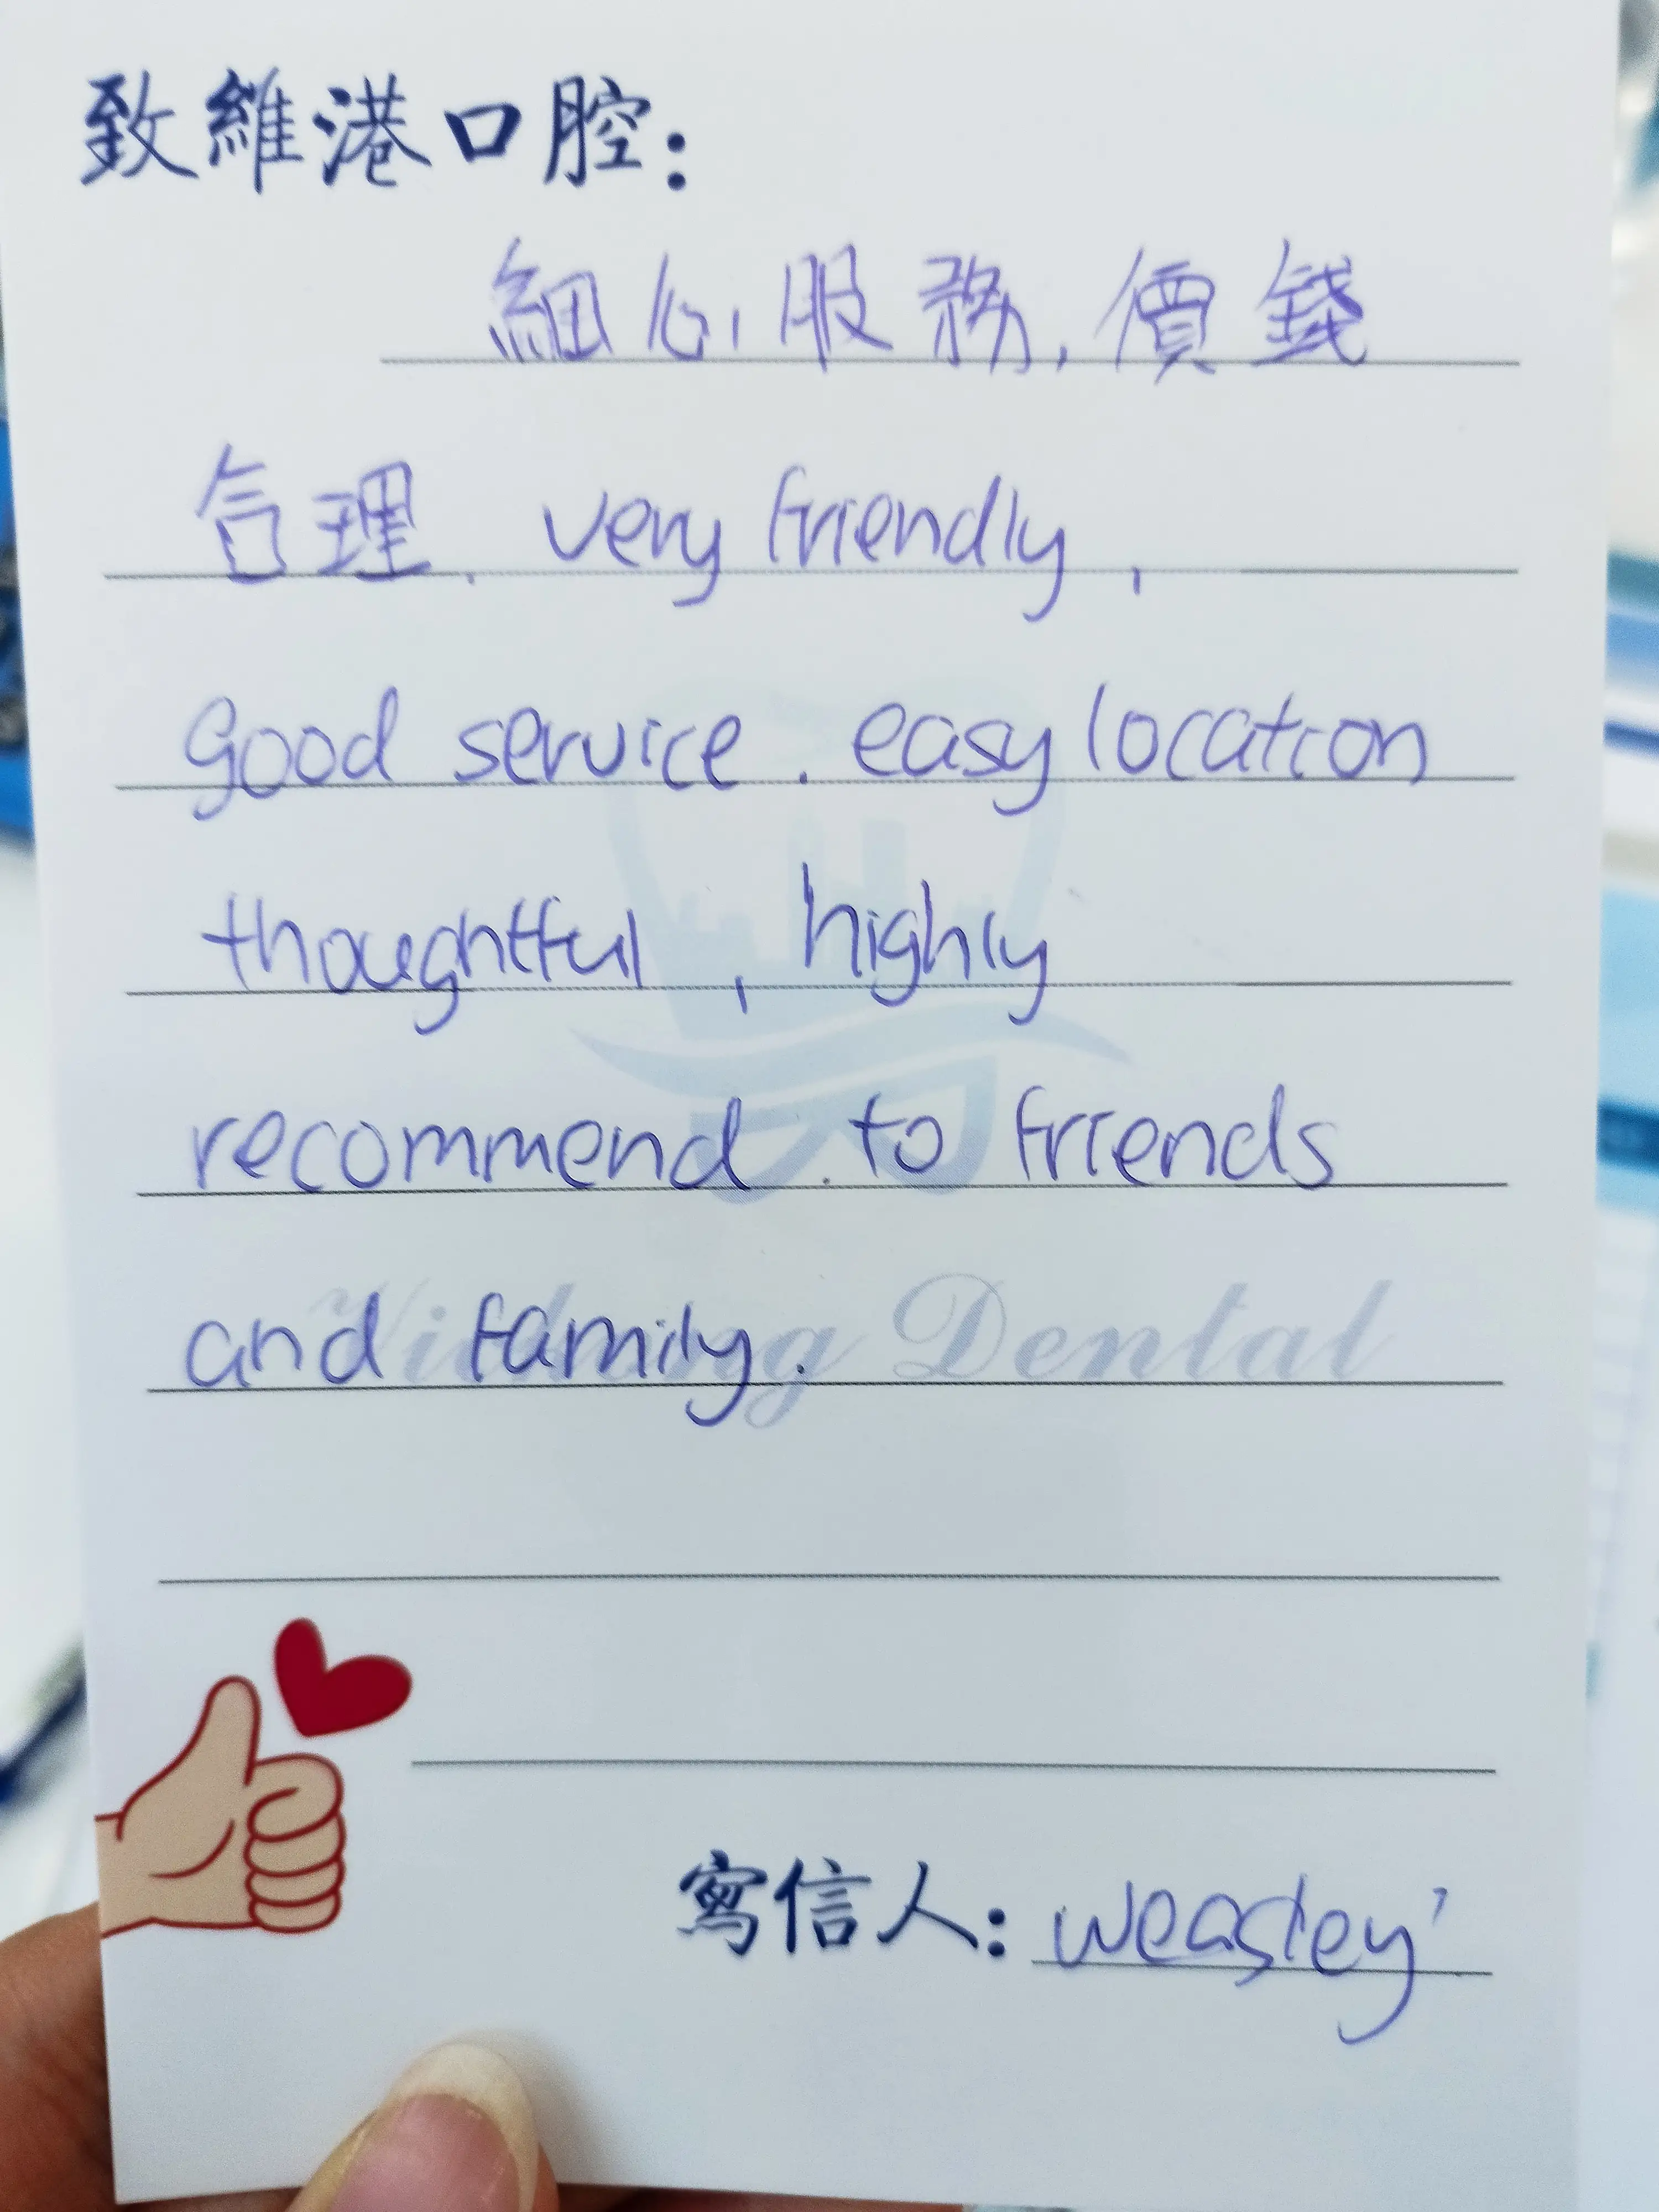 致維港口腔：
細心服務，價錢
合理. very friendly,
good service. easy location
thoughtful, highly
recommend. to friends
and family.
Dental
寫信人：weasley